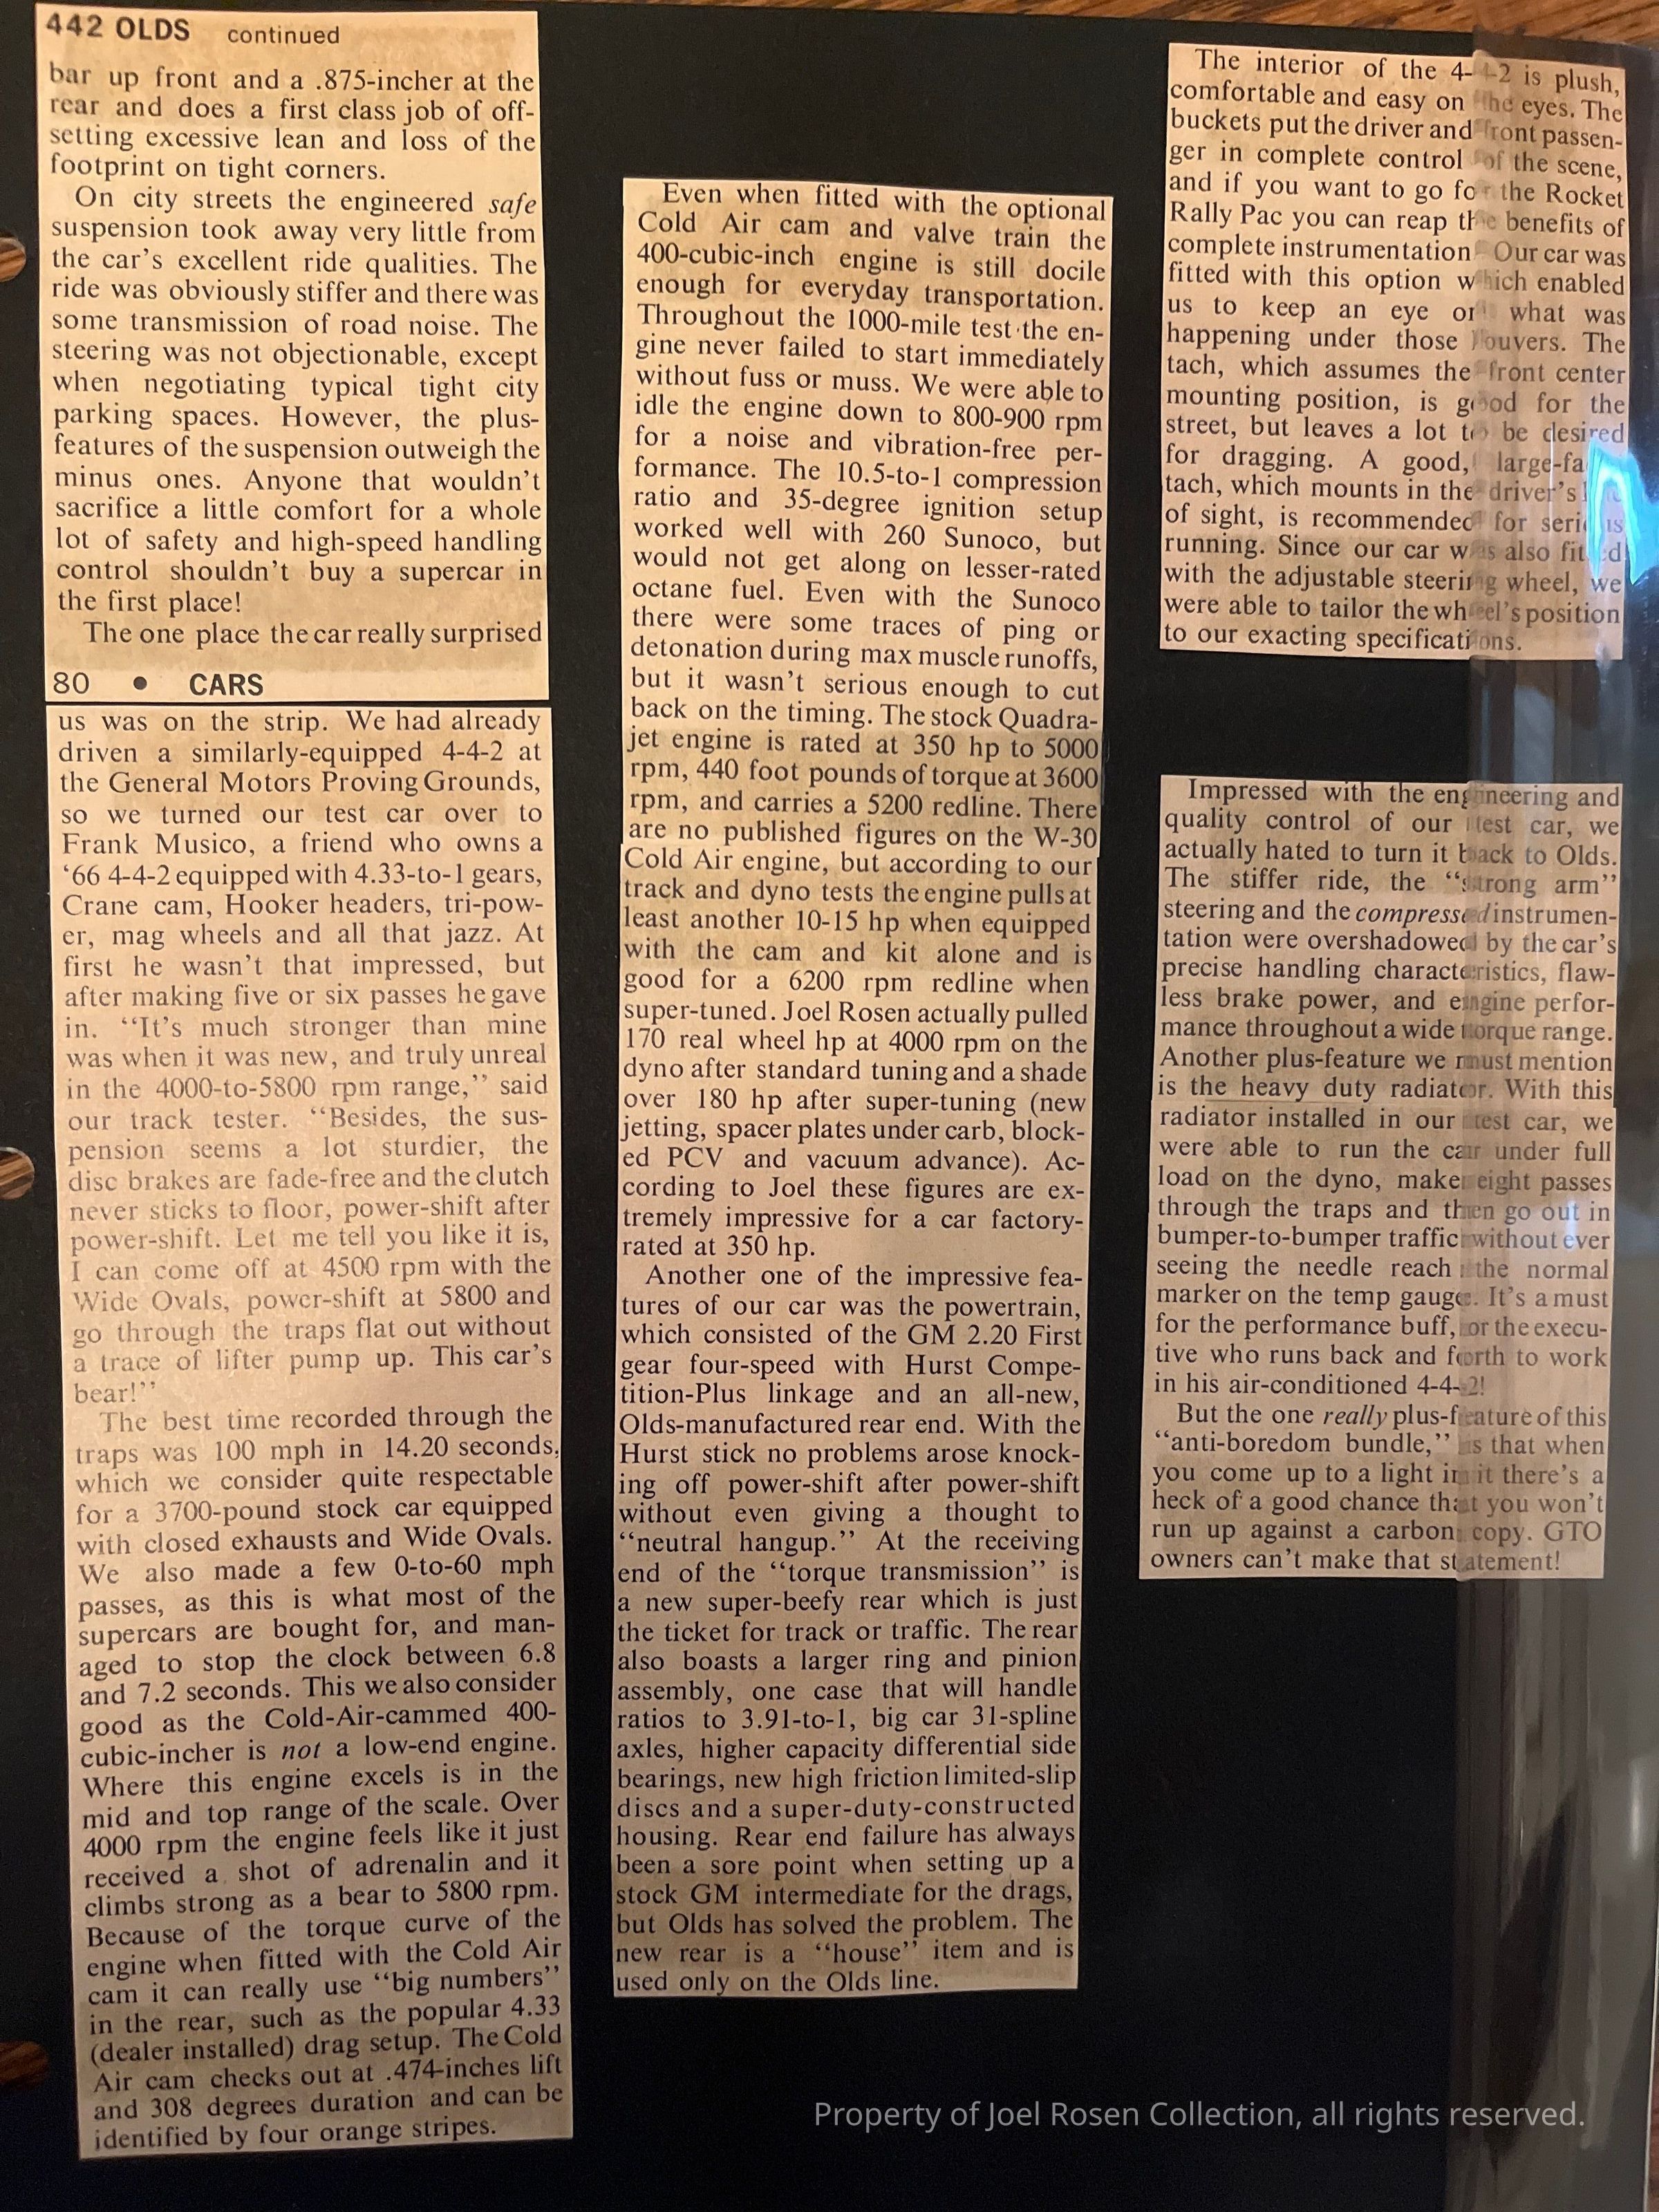 442 OLDS continued
bar up front and a .875-incher at the
rear and does a first class job of off-
setting excessive lean and loss of the
footprint on tight corners.
On city streets the engineered safe
suspension took away very little from
the car's excellent ride qualities. The
ride was obviously stiffer and there was
some transmission of road noise. The
steering was not objectionable, except
when negotiating typical tight city
parking spaces. However, the plus-
features of the suspension outweigh the
minus ones. Anyone that wouldn't
sacrifice a little comfort for a whole
lot of safety and high-speed handling
control shouldn't buy a supercar in
the first place!
The one place the car really surprised
80 • CARS
us was on the strip. We had already
driven a similarly-equipped 4-4-2 at
the General Motors Proving Grounds,
so we turned our test car over to
Frank Musico, a friend who owns a
‘66 4-4-2 equipped with 4.33-to-1 gears,
Crane cam, Hooker headers, tri-pow-
er, mag wheels and all that jazz. At
first he wasn't that impressed, but
after making five or six passes he gave
in. “It's much stronger than mine
was when it was new, and truly unreal
in the 4000-to-5800 rpm range,” said
our track tester. “Besides, the sus-
pension seems a lot sturdier, the
disc brakes are fade-free and the clutch
never sticks to floor, power-shift after
power-shift. Let me tell you like it is,
I can come off at 4500 rpm with the
Wide Ovals, power-shift at 5800 and
go through the traps flat out without
a trace of lifter pump up. This car's
bear!”
The best time recorded through the
traps was 100 mph in 14.20 seconds,
which we consider quite respectable
for a 3700-pound stock car equipped
with closed exhausts and Wide Ovals.
We also made a few 0-to-60 mph
passes, as this is what most of the
supercars are bought for, and man-
aged to stop the clock between 6.8
and 7.2 seconds. This we also consider
good as the Cold-Air-cammed 400-
cubic-incher is not a low-end engine.
Where this engine excels is in the
mid and top range of the scale. Over
4000 rpm the engine feels like it just
received a shot of adrenalin and it
climbs strong as a bear to 5800 rpm.
Because of the torque curve of the
engine when fitted with the Cold Air
cam it can really use “big numbers”
in the rear, such as the popular 4.33
(dealer installed) drag setup. The Cold
Air cam checks out at .474-inches lift
and 308 degrees duration and can be
identified by four orange stripes.
Even when fitted with the optional
Cold Air cam and valve train the
400-cubic-inch engine is still docile
enough for everyday transportation.
Throughout the 1000-mile test the en-
gine never failed to start immediately
without fuss or muss. We were able to
idle the engine down to 800-900 rpm
for a noise and vibration-free per-
formance. The 10.5-to-1 compression
ratio and 35-degree ignition setup
worked well with 260 Sunoco, but
would not get along on lesser-rated
octane fuel. Even with the Sunoco
there were some traces of ping or
detonation during max muscle runoffs,
but it wasn't serious enough to cut
back on the timing. The stock Quadra-
jet engine is rated at 350 hp to 5000
rpm, 440 foot pounds of torque at 3600
rpm, and carries a 5200 redline. There
are no published figures on the W-30
Cold Air engine, but according to our
track and dyno tests the engine pulls at
least another 10-15 hp when equipped
with the cam and kit alone and is
good for a 6200 rpm redline when
super-tuned. Joel Rosen actually pulled
170 real wheel hp at 4000 rpm on the
dyno after standard tuning and a shade
over 180 hp after super-tuning (new
jetting, spacer plates under carb, block-
ed PCV and vacuum advance). Ac-
cording to Joel these figures are ex-
tremely impressive for a car factory-
rated at 350 hp.
Another one of the impressive fea-
tures of our car was the powertrain,
which consisted of the GM 2.20 First
gear four-speed with Hurst Compe-
tition-Plus linkage and an all-new,
Olds-manufactured rear end. With the
Hurst stick no problems arose knock-
ing off power-shift after power-shift
without even giving a thought to
“neutral hangup.” At the receiving
end of the “torque transmission” is
a new super-beefy rear which is just
the ticket for track or traffic. The rear
also boasts a larger ring and pinion
assembly, one case that will handle
ratios to 3.91-to-1, big car 31-spline
axles, higher capacity differential side
bearings, new high friction limited-slip
discs and a super-duty-constructed
housing. Rear end failure has always
been a sore point when setting up a
stock GM intermediate for the drags,
but Olds has solved the problem. The
new rear is a “house” item and is
used only on the Olds line.
The interior of the 4-4-2 is plush,
comfortable and easy on the eyes. The
buckets put the driver and front passen-
ger in complete control of the scene,
and if you want to go for the Rocket
Rally Pac you can reap the benefits of
complete instrumentation. Our car was
fitted with this option which enabled
us to keep an eye on what was
happening under those louvers. The
tach, which assumes the front center
mounting position, is good for the
street, but leaves a lot to be desired
for dragging. A good, large-fa
tach, which mounts in the driver's
of sight, is recommended for serious
running. Since our car was also fitted
with the adjustable steering wheel, we
were able to tailor the wheel's position
to our exacting specifications.
Impressed with the engineering and
quality control of our test car, we
actually hated to turn it back to Olds.
The stiffer ride, the “strong arm”
steering and the compressed instrumen-
tation were overshadowed by the car's
precise handling characteristics, flaw-
less brake power, and engine perfor-
mance throughout a wide torque range.
Another plus-feature we must mention
is the heavy duty radiator. With this
radiator installed in our test car, we
were able to run the car under full
load on the dyno, make eight passes
through the traps and then go out in
bumper-to-bumper traffic without ever
seeing the needle reach the normal
marker on the temp gauge. It's a must
for the performance buff, or the execu-
tive who runs back and forth to work
in his air-conditioned 4-4-2!
But the one really plus-feature of this
“anti-boredom bundle,” is that when
you come up to a light in it there's a
heck of a good chance that you won't
run up against a carbon copy. GTO
owners can't make that statement!
Property of Joel Rosen Collection, all rights reserved.